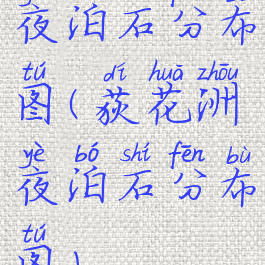 夜泊石分布
tú dí huā zhōu
图(荻花洲
yè bó shí fēn bù
夜泊石分布
tú
图)